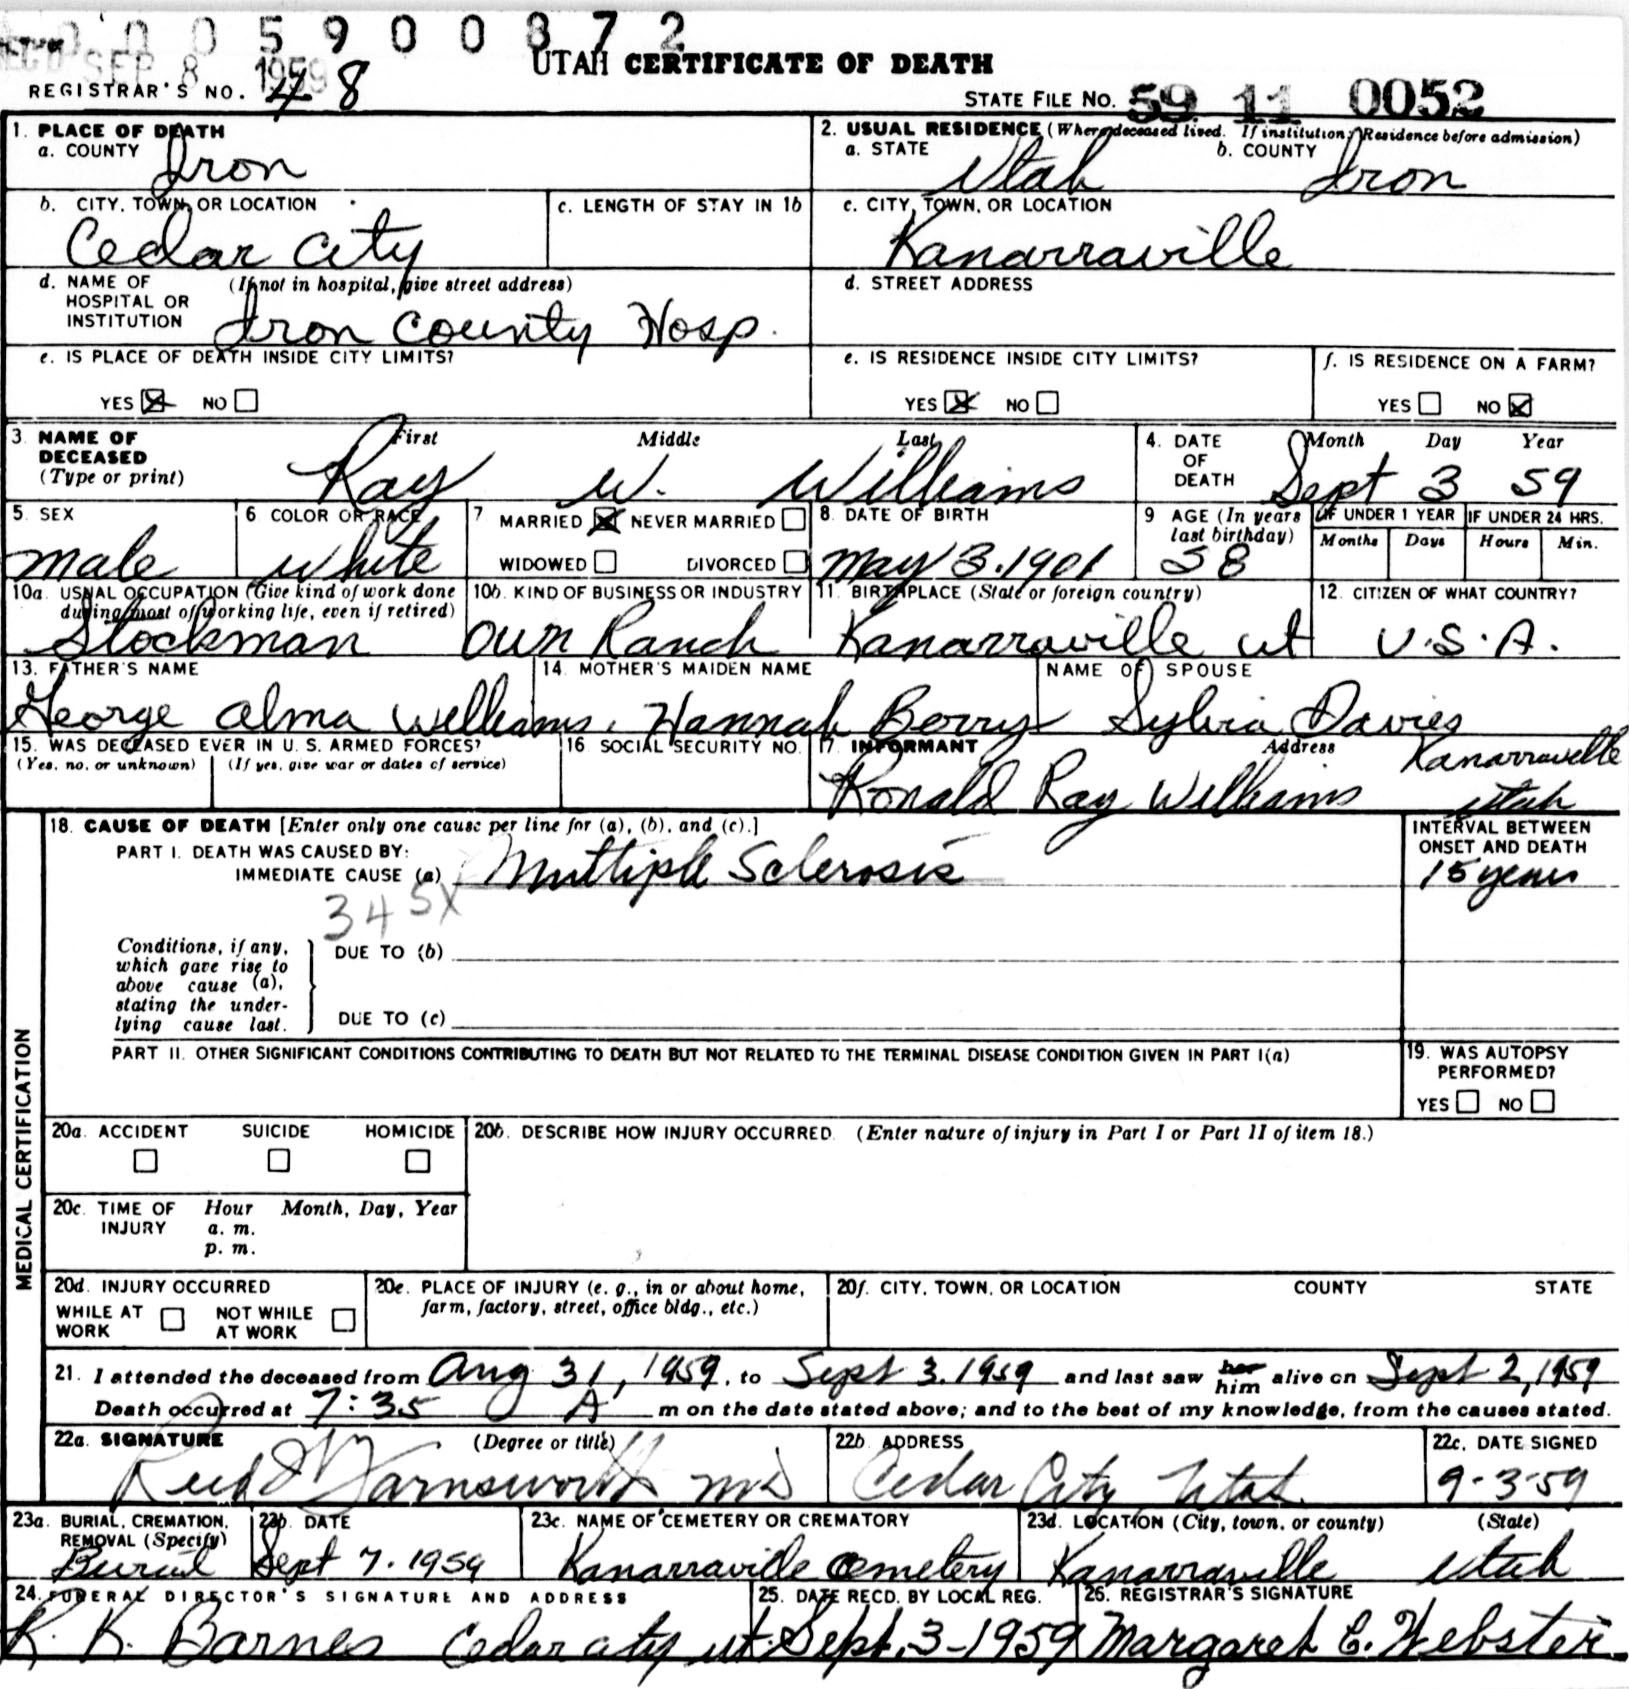 0 0 0 5 9 0 0 8 7 2
REC'D SEP 8 1959
UTAH CERTIFICATE OF DEATH
REGISTRAR'S NO. 48
STATE FILE NO. 59 11 0052
1. PLACE OF DEATH
a. COUNTY Iron
2. USUAL RESIDENCE (Where deceased lived. If institution: Residence before admission)
a. STATE Utah b. COUNTY Iron
b. CITY, TOWN, OR LOCATION Cedar City
c. LENGTH OF STAY IN 1b
c. CITY, TOWN, OR LOCATION Kanarraville
d. NAME OF HOSPITAL OR INSTITUTION (If not in hospital, give street address) Iron County Hosp.
d. STREET ADDRESS
e. IS PLACE OF DEATH INSIDE CITY LIMITS?
YES NO
e. IS RESIDENCE INSIDE CITY LIMITS?
YES NO
f. IS RESIDENCE ON A FARM?
YES NO
3. NAME OF DECEASED (Type or print)
First Middle Last
Ray W. Williams
4. DATE OF DEATH Month Day Year
Sept 3 59
5. SEX male
6. COLOR OR RACE white
7 MARRIED NEVER MARRIED
WIDOWED DIVORCED
8. DATE OF BIRTH May 3. 1901
9 AGE (In years last birthday) 58
IF UNDER 1 YEAR Months Days
IF UNDER 24 HRS. Hours Min.
10a. USUAL OCCUPATION (Give kind of work done during most of working life, even if retired) Stockman
10b. KIND OF BUSINESS OR INDUSTRY Own Ranch
11. BIRTHPLACE (State or foreign country) Kanarraville ut
12. CITIZEN OF WHAT COUNTRY? U.S.A.
13. FATHER'S NAME George Alma Williams
14. MOTHER'S MAIDEN NAME Hannah Berry
NAME OF SPOUSE Sylvia Davies
15. WAS DECEASED EVER IN U. S. ARMED FORCES?
(Yes, no, or unknown) (If yes, give war or dates of service)
16. SOCIAL SECURITY NO.
17. INFORMANT Address
Ronald Ray Williams Kanarraville Utah
18. CAUSE OF DEATH [Enter only one cause per line for (a), (b), and (c).]
INTERVAL BETWEEN ONSET AND DEATH
PART I. DEATH WAS CAUSED BY:
IMMEDIATE CAUSE (a) Multiple Sclerosis 15 years
345X
Conditions, if any, which gave rise to above cause (a), stating the underlying cause last.
DUE TO (b)
DUE TO (c)
PART II. OTHER SIGNIFICANT CONDITIONS CONTRIBUTING TO DEATH BUT NOT RELATED TO THE TERMINAL DISEASE CONDITION GIVEN IN PART I(a)
19. WAS AUTOPSY PERFORMED?
YES NO
MEDICAL CERTIFICATION
20a. ACCIDENT SUICIDE HOMICIDE
20b. DESCRIBE HOW INJURY OCCURRED. (Enter nature of injury in Part I or Part II of item 18.)
20c. TIME OF INJURY Hour Month, Day, Year
a. m.
p. m.
20d. INJURY OCCURRED
WHILE AT WORK NOT WHILE AT WORK
20e. PLACE OF INJURY (e. g., in or about home, farm, factory, street, office bldg., etc.)
20f. CITY, TOWN, OR LOCATION COUNTY STATE
21. I attended the deceased from Aug 31, 1959, to Sept 3. 1959 and last saw her him alive on Sept 2, 1959
Death occurred at 7:35 A m on the date stated above; and to the best of my knowledge, from the causes stated.
22a. SIGNATURE (Degree or title)
Farnsworth MD
22b. ADDRESS Cedar City, Utah
22c. DATE SIGNED 9-3-59
23a. BURIAL, CREMATION, REMOVAL (Specify) Burial
23b. DATE Sept 7. 1959
23c. NAME OF CEMETERY OR CREMATORY Kanarraville Cemetery
23d. LOCATION (City, town, or county) (State)
Kanarraville Utah
24. FUNERAL DIRECTOR'S SIGNATURE AND ADDRESS
R. K. Barnes Cedar City ut.
25. DATE RECD. BY LOCAL REG. Sept. 3-1959
26. REGISTRAR'S SIGNATURE Margaret C. Webster